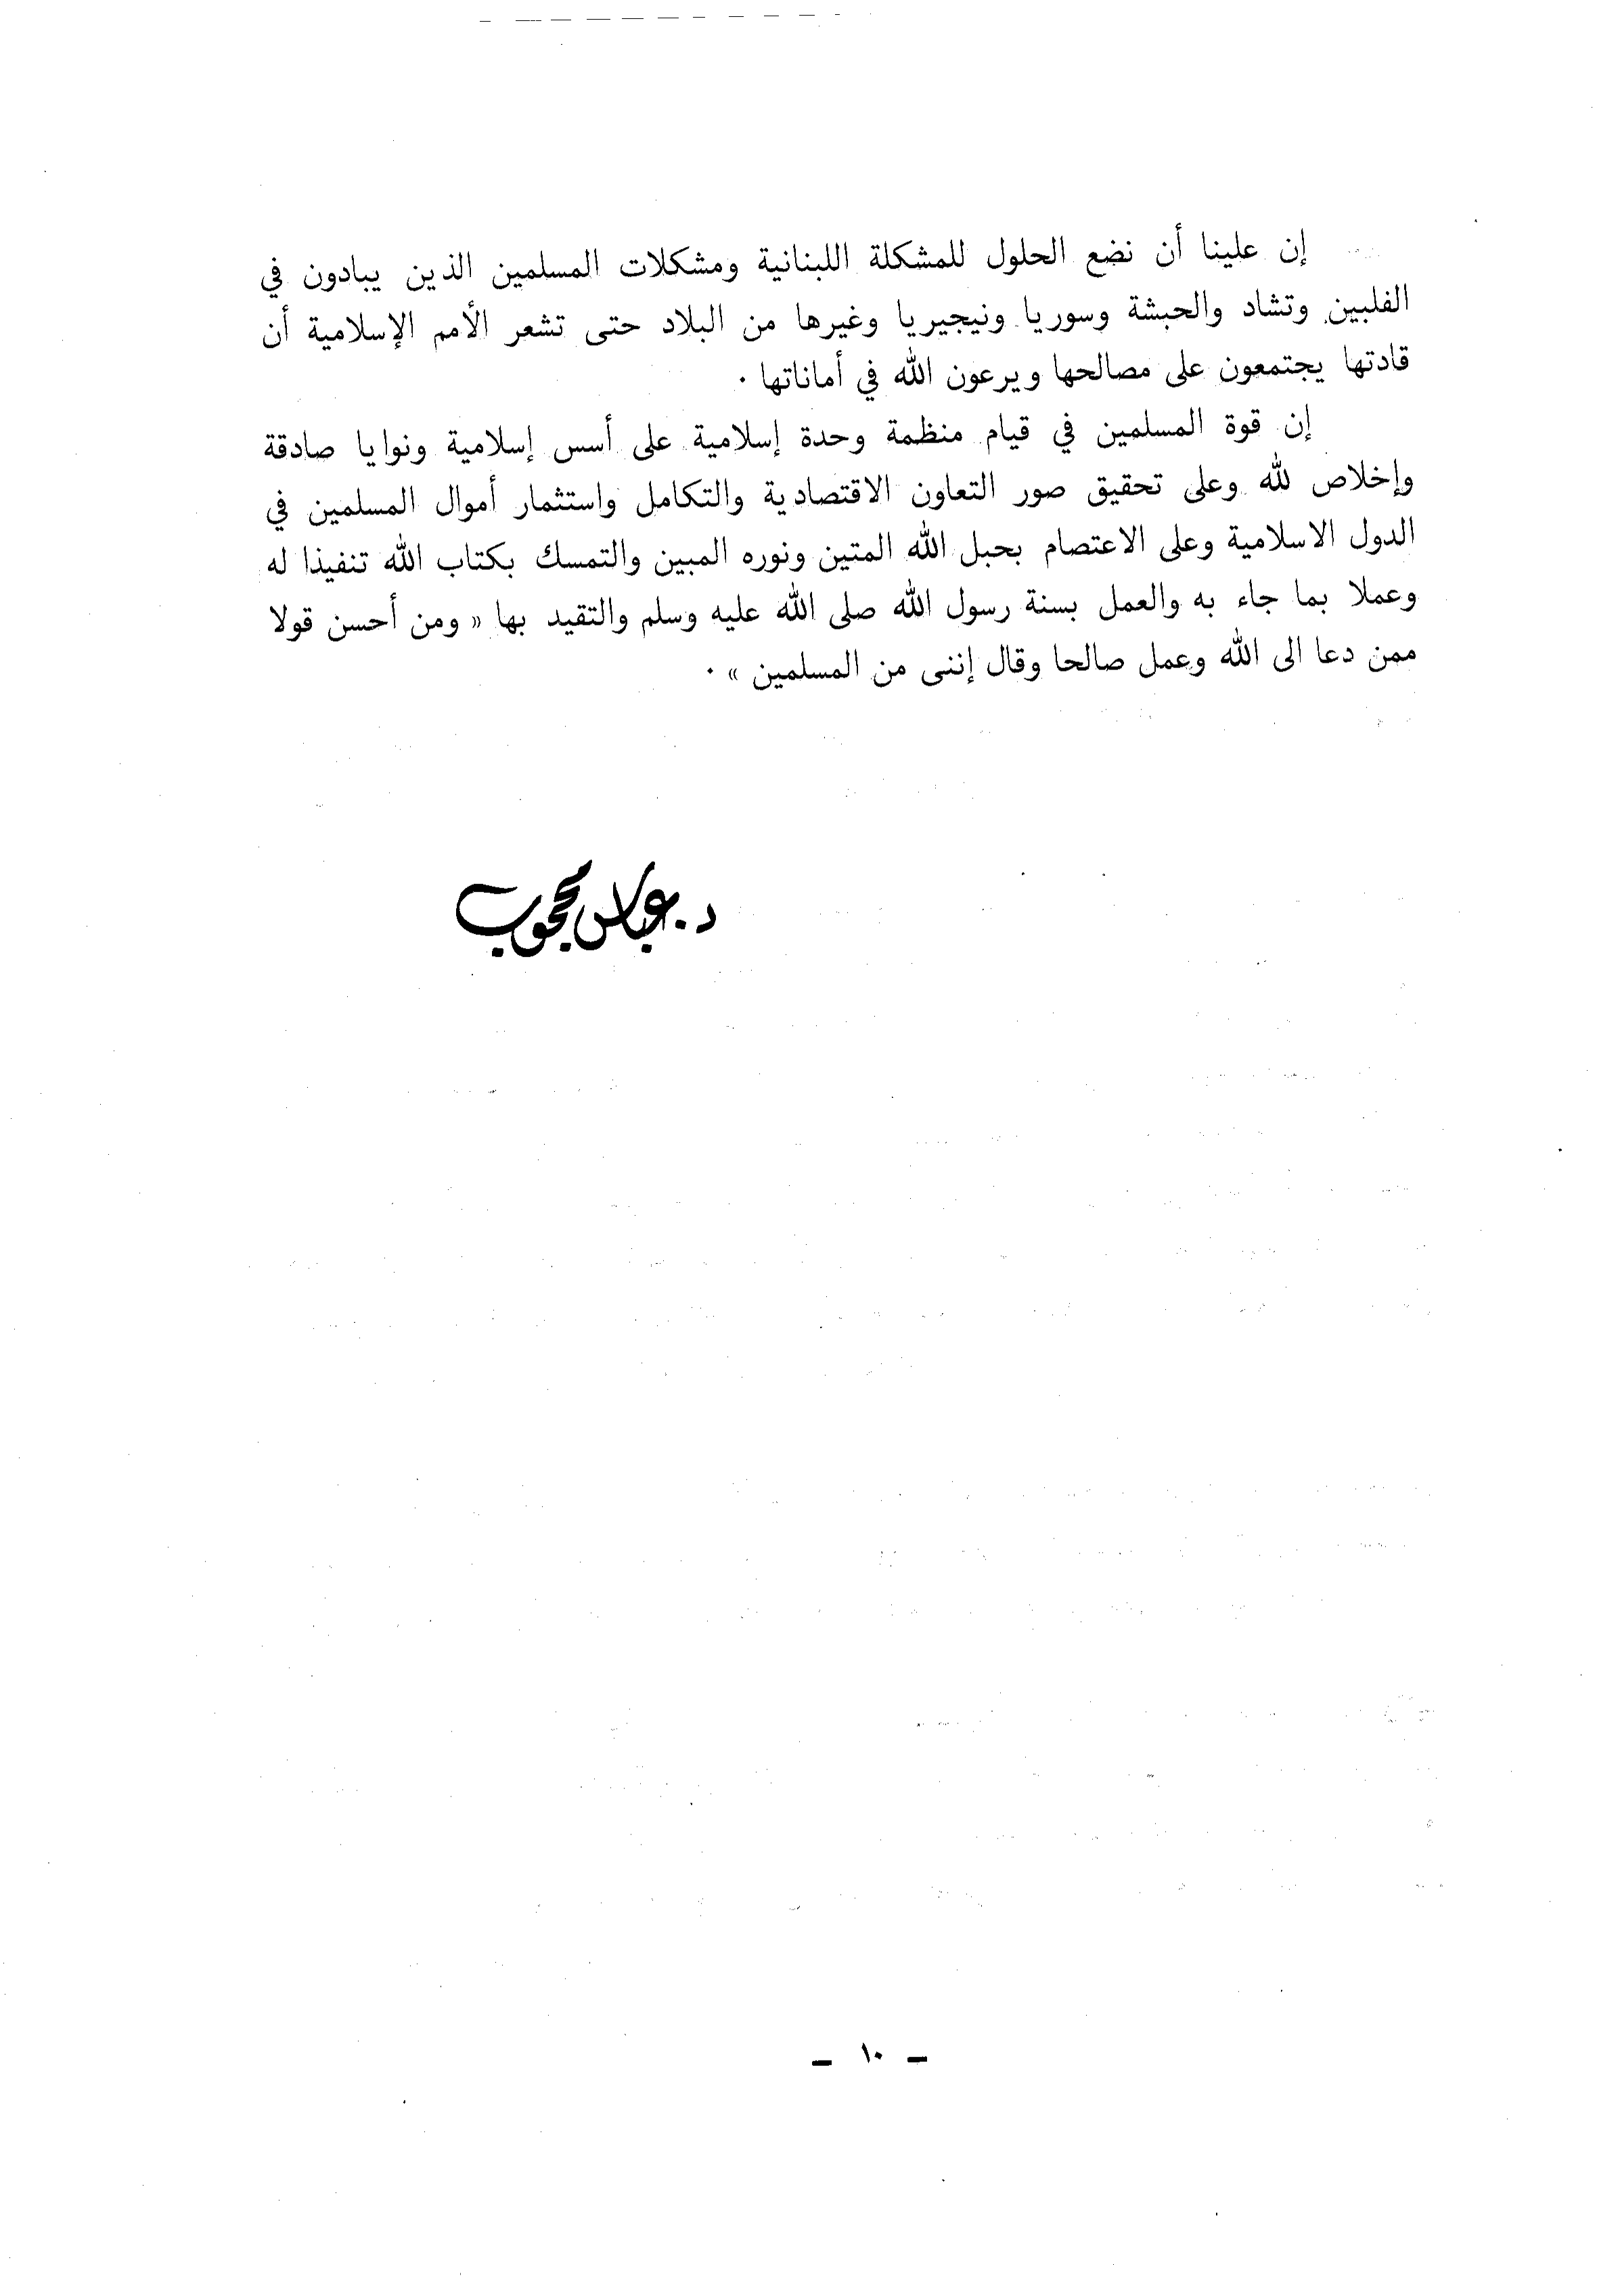 إن علينا أن نضع الحلول للمشكلة اللبنانية ومشكلات المسلمين الذين يبادون في
الفلبين وتشاد والحبشة وسوريا ونيجيريا وغيرها من البلاد حتى تشعر الأمم الإسلامية أن
قادتها يجتمعون على مصالحها ويرعون الله في أماناتها .
إن قوة المسلمين في قيام منظمة وحدة إسلامية على أسس إسلامية ونوايا صادقة
وإخلاص لله وعلى تحقيق صور التعاون الاقتصادية والتكامل واستثمار أموال المسلمين في
الدول الاسلامية وعلى الاعتصام بحبل الله المتين ونوره المبين والتمسك بكتاب الله تنفيذا له
وعملا بما جاء به والعمل بسنة رسول الله صلى الله عليه وسلم والتقيد بها « ومن أحسن قولا
ممن دعا الى الله وعمل صالحا وقال إننى من المسلمين » .
د. عباس محجوب
— ١٠ —